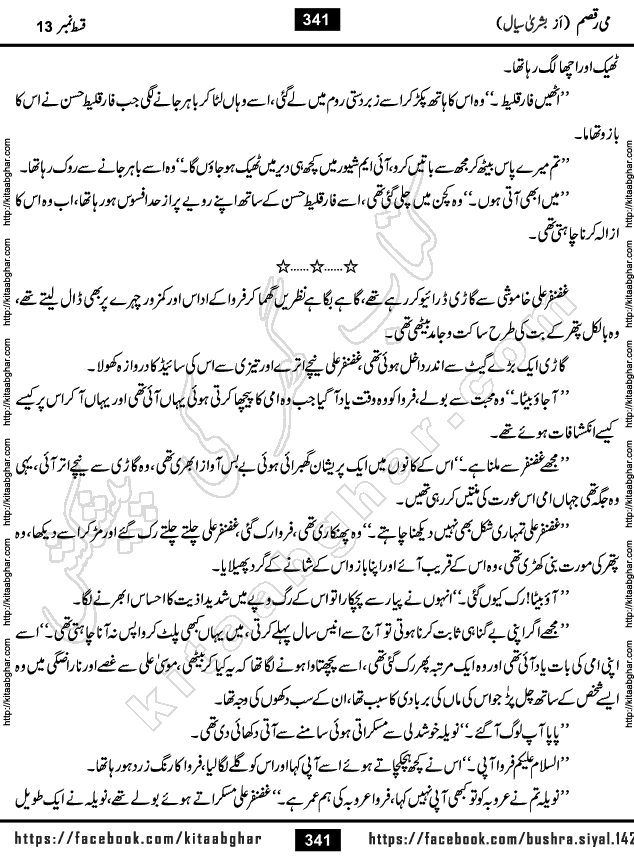 می رقصم (از بشریٰ سیال)
341
قسط نمبر 13
ٹھیک اور اچھا لگ رہا تھا۔
’’اٹھیں فارقلیط۔‘‘ وہ اس کا ہاتھ پکڑ کر اسے زبردستی روم میں لے گئی، اسے وہاں لٹا کر باہر جانے لگی جب فارقلیط حسن نے اس کا
بازو تھاما۔
’’تم میرے پاس بیٹھ کر مجھ سے باتیں کرو، آئی ایم شیور میں کچھ ہی دیر میں ٹھیک ہو جاؤں گا۔‘‘ وہ اسے باہر جانے سے روک رہا تھا۔
’’میں ابھی آتی ہوں۔‘‘ وہ کچن میں چلی گئی تھی، اسے فارقلیط حسن کے ساتھ اپنے رویے پر از حد افسوس ہو رہا تھا، اب وہ اس کا
ازالہ کرنا چاہتی تھی۔
☆......☆......☆
غضنفر علی خاموشی سے گاڑی ڈرائیو کر رہے تھے، گاہے بگاہے نظریں گھما کر فروا کے اداس اور کمزور چہرے پر بھی ڈال لیتے تھے،
وہ بالکل پتھر کے بت کی طرح ساکت و جامد بیٹھی تھی۔
گاڑی ایک بڑے گیٹ سے اندر داخل ہوئی تھی، غضنفر علی نیچے اترے اور تیزی سے اس کی سائیڈ کا دروازہ کھولا۔
’’آ جاؤ بیٹا۔‘‘ وہ محبت سے بولے، فروا کو وہ وقت یاد آ گیا جب وہ امی کا پیچھا کرتی ہوئی یہاں آئی تھی اور یہاں آ کر اس پر کیسے
کیسے انکشافات ہوئے تھے۔
’’مجھے غضنفر سے ملنا ہے۔‘‘ اس کے کانوں میں ایک پریشان گھبرائی ہوئی بے بس آواز ابھری تھی، وہ گاڑی سے نیچے اتر آئی، یہی
وہ جگہ تھی جہاں امی اس عورت کی منتیں کر رہی تھیں۔
’’غضنفر علی تمہاری شکل بھی نہیں دیکھنا چاہتے۔‘‘ وہ پھنکاری تھی، فروا رک گئی، غضنفر علی چلتے چلتے رک گئے اور مڑ کر اسے دیکھا، وہ
پتھر کی مورت بنی کھڑی تھی، وہ اس کے قریب آئے اور اپنا بازو اس کے شانے کے گرد پھیلایا۔
’’آؤ بیٹا! رک کیوں گئی۔‘‘ انہوں نے پیار سے پچکارا تو اس کے رگ و پے میں شدید اذیت کا احساس ابھرنے لگا۔
’’مجھے اگر اپنی بے گناہی ثابت کرنا ہوتی تو آج سے انیس سال پہلے کرتی، میں یہاں کبھی پلٹ کر واپس نہ آنا چاہتی تھی۔‘‘ اسے
اپنی امی کی بات یاد آئی تھی اور وہ ایک مرتبہ پھر رک گئی تھی، اسے پچھتاوا ہونے لگا تھا کہ یہ کیا کر بیٹھی، موسیٰ علی سے غصے اور ناراضگی میں وہ
ایسے شخص کے ساتھ چل پڑی جو اس کی ماں کی بربادی کا سبب تھا، ان کے سب دکھوں کی وجہ تھا۔
’’پاپا آپ لوگ آ گئے۔‘‘ نویلہ خوشدلی سے مسکراتی ہوئی سامنے سے آتی دکھائی دی تھی۔
’’السلام علیکم فروا آپی۔‘‘ اس نے کچھ ہچکچاتے ہوئے اسے آپی کہا اور اس کو گلے لگا لیا، فروا کا رنگ زرد ہو رہا تھا۔
’’نویلہ تم نے عروبہ کو تو کبھی آپی نہیں کہا، فروا عروبہ کی ہم عمر ہے۔‘‘ غضنفر علی مسکراتے ہوئے بولے تھے، نویلہ نے ایک طویل
https://facebook.com/kitaabghar
341
https://facebook.com/bushra.siyal.142
http://kitaabghar.com http://kitaabghar.com http://kitaabghar.com http://kitaabghar.com http://kitaabghar.com http://kitaabghar.com
http://kitaabghar.com http://kitaabghar.com http://kitaabghar.com http://kitaabghar.com http://kitaabghar.com http://kitaabghar.com
کتاب گھر کی پیشکش
kitaabghar.com